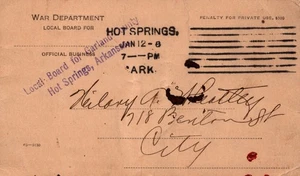 WAR DEPARTMENT
LOCAL BOARD FOR
PENALTY FOR PRIVATE USE, $300
OFFICIAL BUSINESS
HOT SPRINGS,
JAN 12-6
7—PM
ARK.
Local Board for Garland County
Hot Springs, Arkansas
Hilary A.
718 Benton St
City